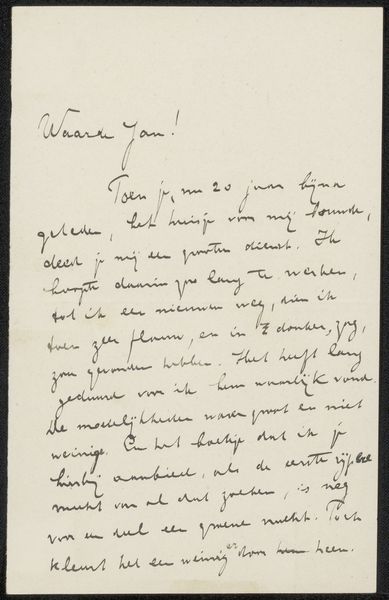 Waarde Jan!
Toen je, nu 20 jaar bijna
geleden, het huisje voor mij bouwde,
deed je mij een grooten dienst. Ik
hoopte daarin zoo lang te werken,
tot ik een nieuwen weg, dien ik
toen zeer flauw, en in 't donker, zag,
zou gevonden hebben. Het heeft lang
geduurd voor ik hem waarlijk vond.
De moeilijkheden waren groot en niet
weinige. En het boekje dat ik je
hierbij aanbied, als de eerste rijpe
vrucht van al dat zoeken, is nog
voor een deel een groene vrucht. Toch
kleurt het een weinig er door heen.